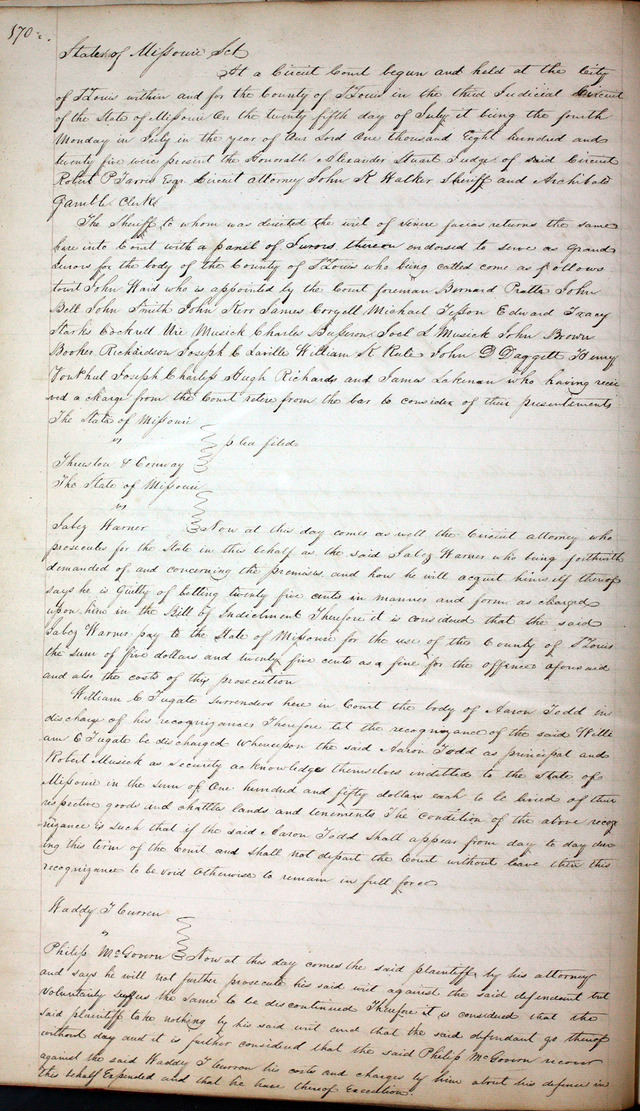 170
State of Missouri Sct
At a Circuit Court begun and held at the City
of St Louis within and for the County of St Louis in the third Judicial Circuit
of the State of Missouri On the twenty fifth day of July it being the fourth
Monday in July in the year of Our Lord One thousand Eight hundred and
twenty five were present the Honorable Alexander Stuart Judge of said Circuit
Robert P Farris Esqr Circuit Attorney John K Walker Sheriff and Archibald
Gamble Clerk
The Sheriff to whom was directed the writ of venire facias returns the same
here into Court with a panel of Jurors thereon endorsed to serve as Grand
Jurors for the body of the County of St Louis who being called come as follows
towit John Ward who is appointed by the Court foreman Bernard Pratte John
Bell John Smith John Kerr James Coryell Michael Tesson Edward Tracy
Starks Cockrell Uri Musick Charles Busseron Joel L Musick John Brown
Booker Richardson Joseph C Laville William K Rule John D Daggett Henry
Von Phul Joseph Charless Hugh Richards and James Lakenan who having recei
ved a charge from the Court retire from the bar to consider of their presentments
The State of Missouri
vs
plea filed
Thruston & Conway
The State of Missouri
vs
Jabez Warner Now at this day comes as well the Circuit attorney who
prosecutes for the State in this behalf as the said Jabez Warner who being forthwith
demanded of and concerning the premises and how he will acquit himself thereof
says he is Guilty of betting twenty five cents in manner and form as charged
upon him in the Bill of Indictment Therefore it is considered that the said
Jabez Warner pay to the State of Missouri for the use of the County of St Louis
the sum of five dollars and twenty five cents as a fine for the offence aforesaid
and also the costs of this prosecution
William C Fugate surrenders here in Court the body of Aaron Todd in
discharge of his recognizances Therefore let the recognizance of the said Willi
am C Fugate be discharged whereupon the said Aaron Todd as principal and
Robert Musick as security acknowledge themselves indebted to the State of
Missouri in the sum of One hundred and fifty dollars each to be levied of their
respective goods and chattles lands and tenements The condition of the above recog
nizance is such that if the said Aaron Todd shall appear from day to day dur
ing this term of the Court and shall not depart the Court without leave then this
recognizance to be void Otherwise to remain in full force
Waddy T Curren
vs
Philip McGovern Now at this day comes the said plaintiff by his attorney
and says he will not further prosecute his said writ against the said defendant but
voluntarily suffers the same to be discontinued Therefore it is considered that the
said plaintiff take nothing by his said writ and that the said defendant go thereof
without day and it is further considered that the said Philip McGovern recover
against the said Waddy T Curran his costs and charges by him about his defence in
this behalf Expended and that he have thereof Execution.